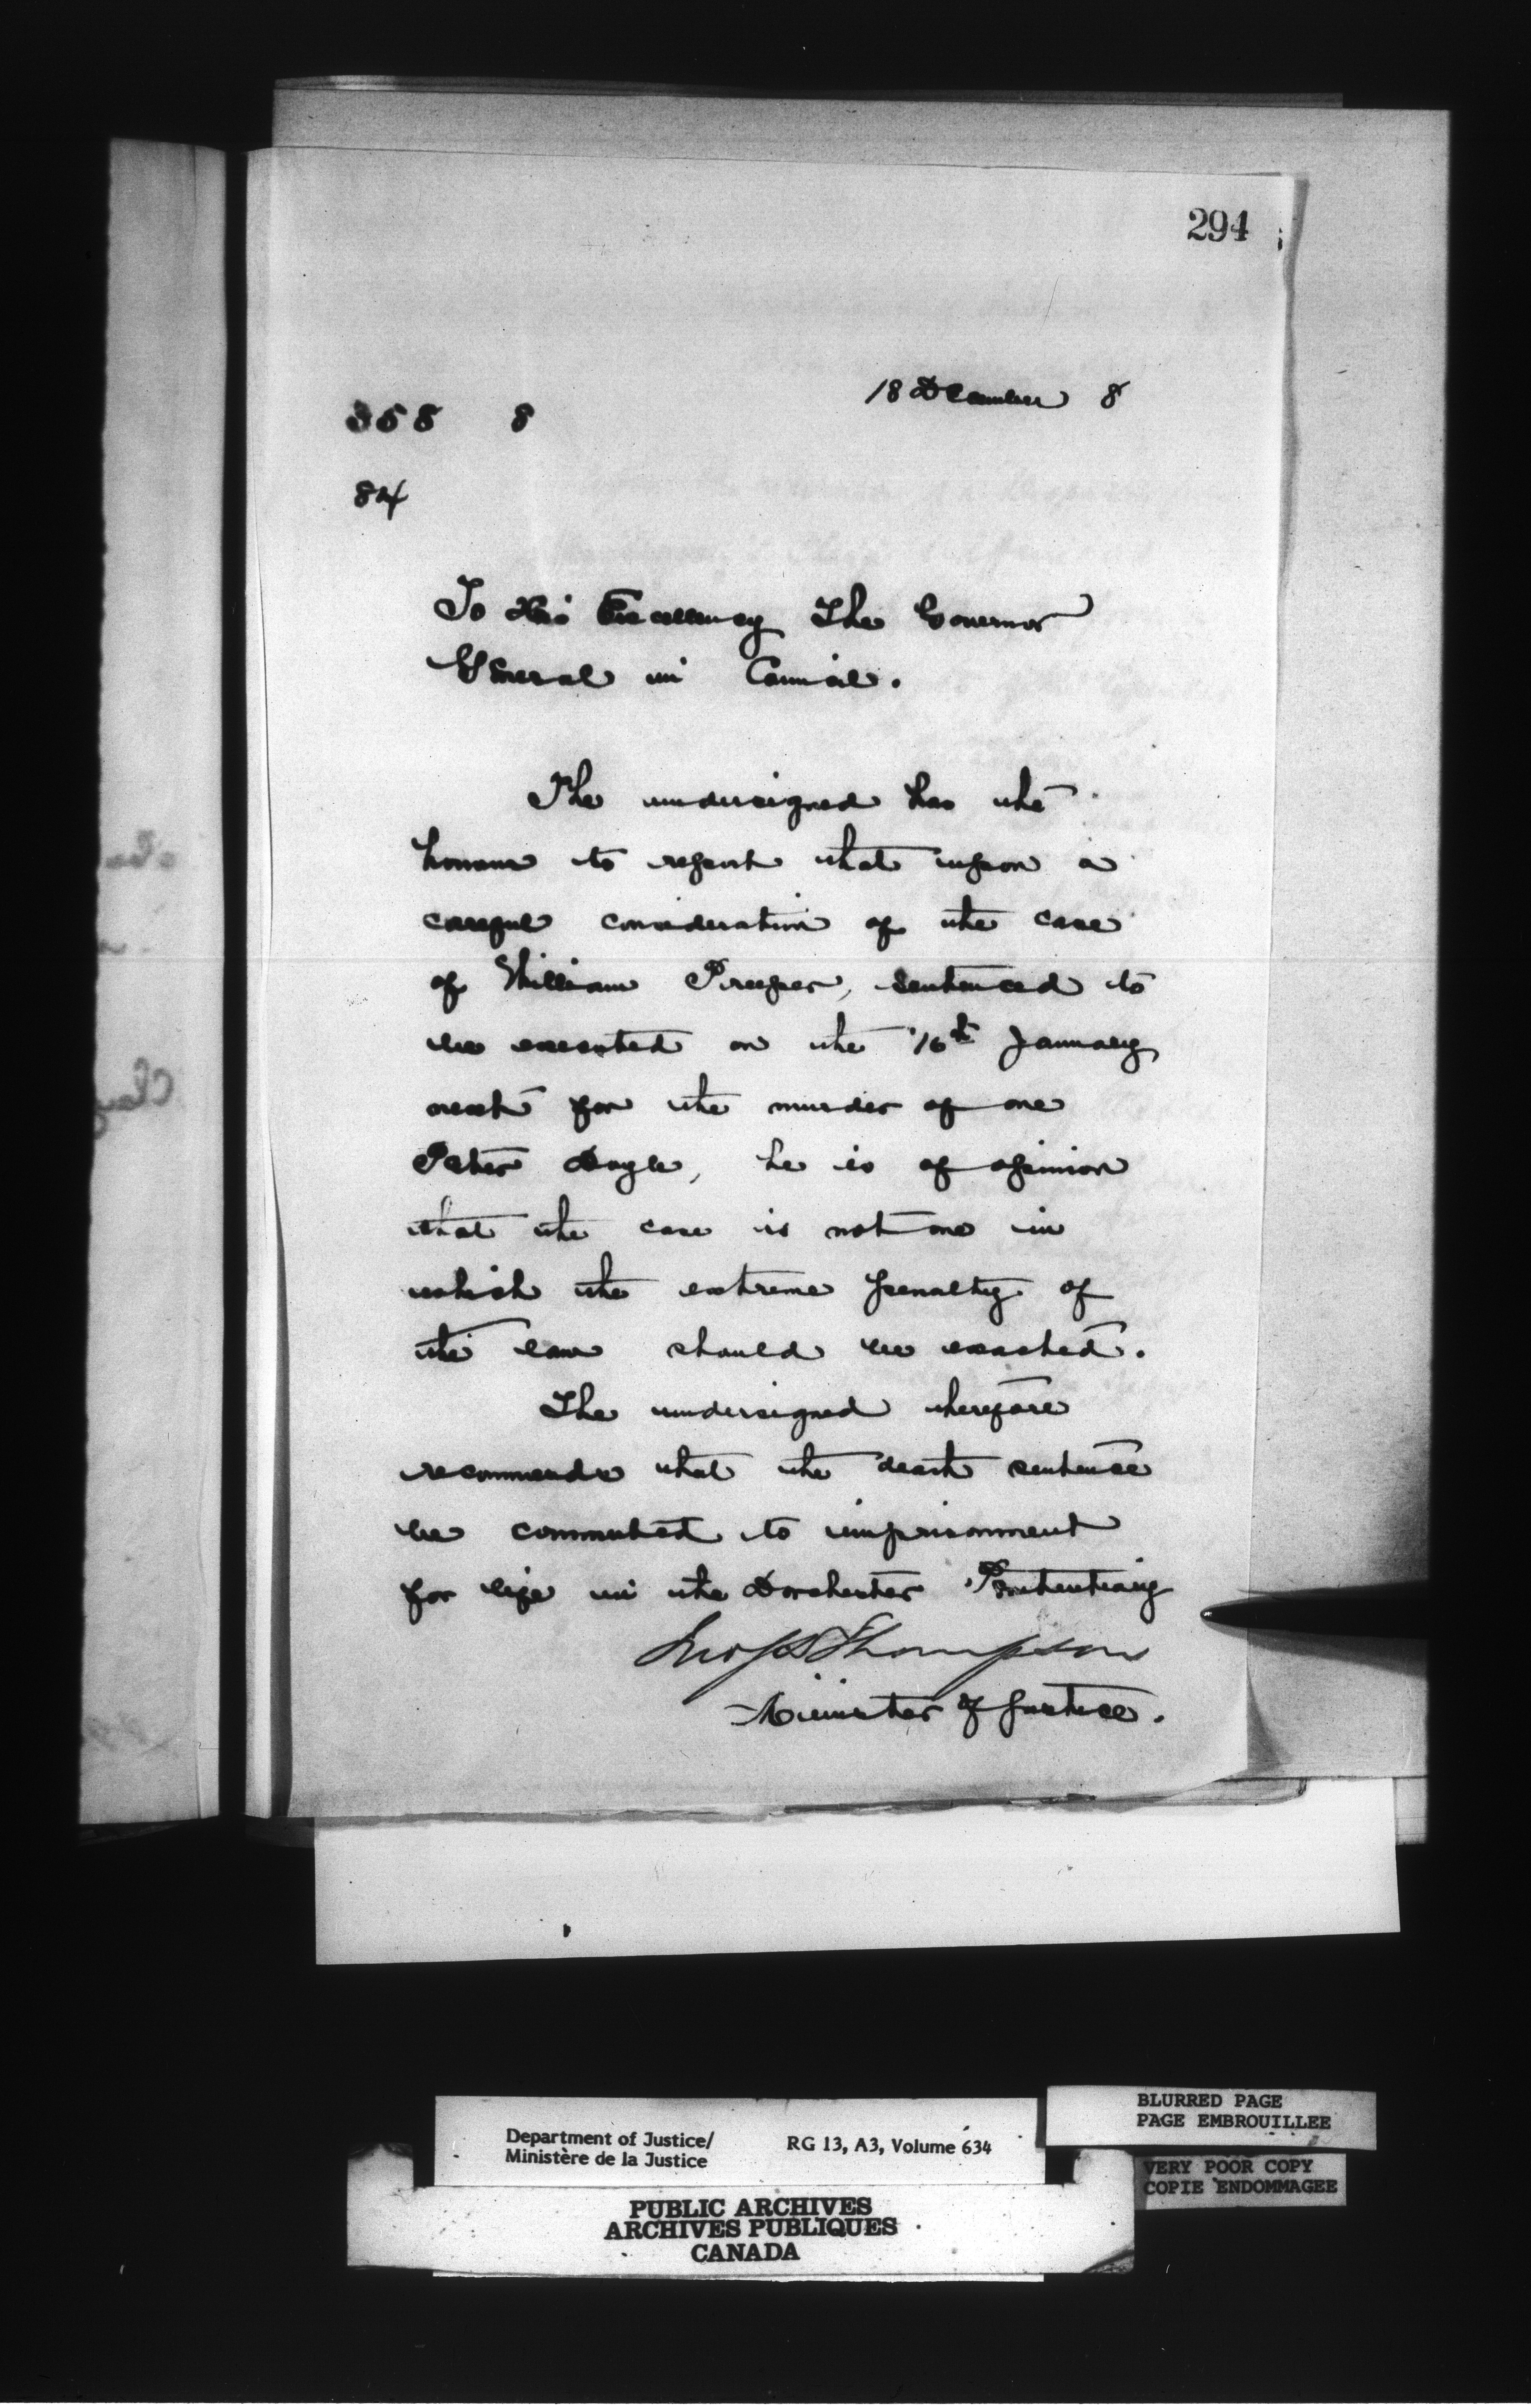 294
18 December 8
358 8
84
To His Excellency The Governor
General in Council.
The undersigned has the
honour to report that upon a
careful consideration of the case
of William Preeper, sentenced to
be executed on the 16th January
next for the murder of one
Peter Doyle, he is of opinion
that the case is not one in
which the extreme penalty of
the law should be exacted.
The undersigned therefore
recommends that the death sentence
be commuted to imprisonment
for life in the Dorchester Penitentiary
Jno S D Thompson
Minister of Justice.
Department of Justice/
Ministère de la Justice
RG 13, A3, Volume 634
BLURRED PAGE
PAGE EMBROUILLEE
VERY POOR COPY
COPIE ENDOMMAGEE
PUBLIC ARCHIVES
ARCHIVES PUBLIQUES
CANADA